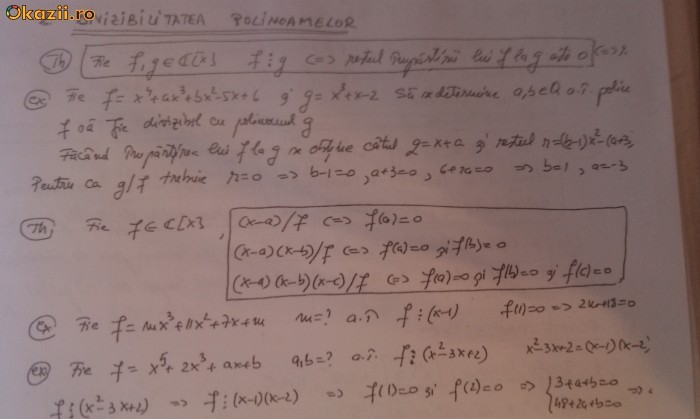 Okazii.ro
DIVIZIBILITATEA POLINOAMELOR
Th Fie f, g ∈ ℂ[x] f ⋮ g <=> restul împărțirii lui f la g este 0 <=>
ex Fie f = x⁴+ax³+bx²-5x+6 și g = x³+x-2 Să se determine a,b∈ℚ a.î. polin
f să fie divizibil cu polinomul g
Făcând împărțirea lui f la g se obține câtul q=x+a și restul r=(b-1)x²-(a+3
Pentru ca g/f trebuie r=0 => b-1=0, a+3=0, 6+2a=0 => b=1, a=-3
Th Fie f ∈ ℂ[x], (x-a)/f <=> f(a)=0
(x-a)(x-b)/f <=> f(a)=0 și f(b)=0
(x-a)(x-b)(x-c)/f <=> f(a)=0 și f(b)=0 și f(c)=0
ex Fie f = mx³+11x²+7x+m m=? a.î. f ⋮ (x-1) f(1)=0 => 2m+18=0
ex Fie f = x⁵+2x³+ax+b a,b=? a.î. f ⋮ (x²-3x+2) x²-3x+2=(x-1)(x-2)
f ⋮ (x²-3x+2) => f ⋮ (x-1)(x-2) => f(1)=0 și f(2)=0 => { 3+a+b=0 =>
48+2a+b=0